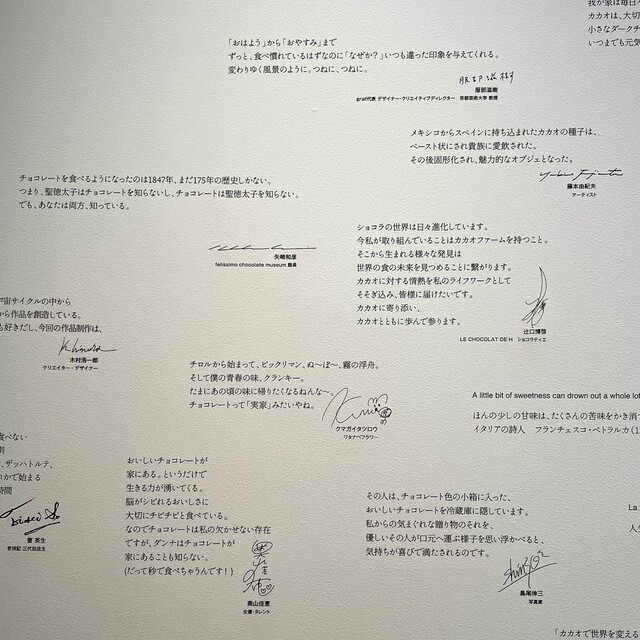 「おはよう」から「おやすみ」まで
ずっと、食べ慣れているはずなのに「なぜか？」いつも違った印象を与えてくれる。
変わりゆく風景のように。つねに、つねに。
服部滋樹
graf代表 デザイナー・クリエイティブディレクター　京都芸術大学 教授
我が家は毎日
カカオは、大切
小さなダークチ
いつまでも元気
メキシコからスペインに持ち込まれたカカオの種子は、
ペースト状にされ貴族に愛飲された。
その後固形化され、魅力的なオブジェとなった。
藤本由紀夫
アーティスト
チョコレートを食べるようになったのは1847年、まだ175年の歴史しかない。
つまり、聖徳太子はチョコレートを知らないし、チョコレートは聖徳太子を知らない。
でも、あなたは両方、知っている。
矢崎和彦
felissimo chocolate museum 館長
ショコラの世界は日々進化しています。
今私が取り組んでいることはカカオファームを持つこと。
そこから生まれる様々な発見は
世界の食の未来を見つめることに繋がります。
カカオに対する情熱を私のライフワークとして
そそぎ込み、皆様に届けたいです。
カカオに寄り添い、
カカオとともに歩んで参ります。
辻口博啓
LE CHOCOLAT DE H　ショコラティエ
宇宙サイクルの中から
から作品を創造している。
も好きだし、今回の作品制作は、
木村浩一郎
クリエイター・デザイナー
チロルから始まって、ビックリマン、ぬ〜ぼ〜、霧の浮舟。
そして僕の青春の味、クランキー。
たまにあの頃の味に帰りたくなるねんな〜。
チョコレートって「実家」みたいやね。
クマガイタツロウ
ワタナベフラワー
A little bit of sweetness can drown out a whole lot
ほんの少しの甘味は、たくさんの苦味をかき消
イタリアの詩人　フランチェスコ・ペトラルカ（1
食べない
、ザッハトルテ、
コかで始まる
時間
曹 英生
老祥記 三代目店主
おいしいチョコレートが
家にある。というだけで
生きる力が湧いてくる。
脳がシビれるおいしさに
大切にチビチビと食べている。
なのでチョコレートは私の欠かせない存在
ですが、ダンナはチョコレートが
家にあることも知らない。
(だって秒で食べちゃうんです！)
奥山佳恵
女優・タレント
その人は、チョコレート色の小箱に入った、
おいしいチョコレートを冷蔵庫に隠しています。
私からの気まぐれな贈り物のそれを、
優しいその人が口元へ運ぶ様子を思い浮かべると、
気持ちが喜びで満たされるのです。
島尾伸三
写真家
La
人生
「カカオで世界を変える